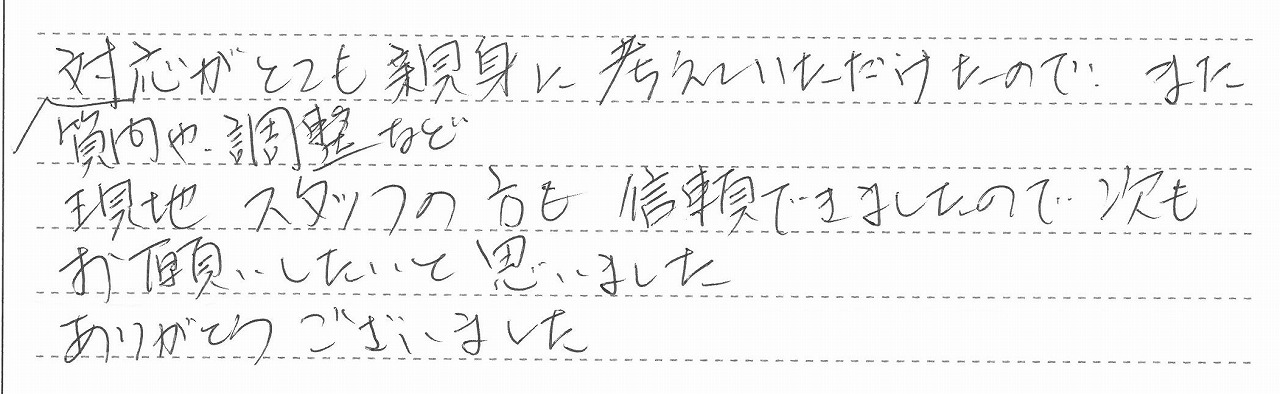 対応がとても親身に考えていただけたので、また
質問や、調整など
現地スタッフの方も信頼できましたので、次も
お願いしたいと思いました
ありがとうございました